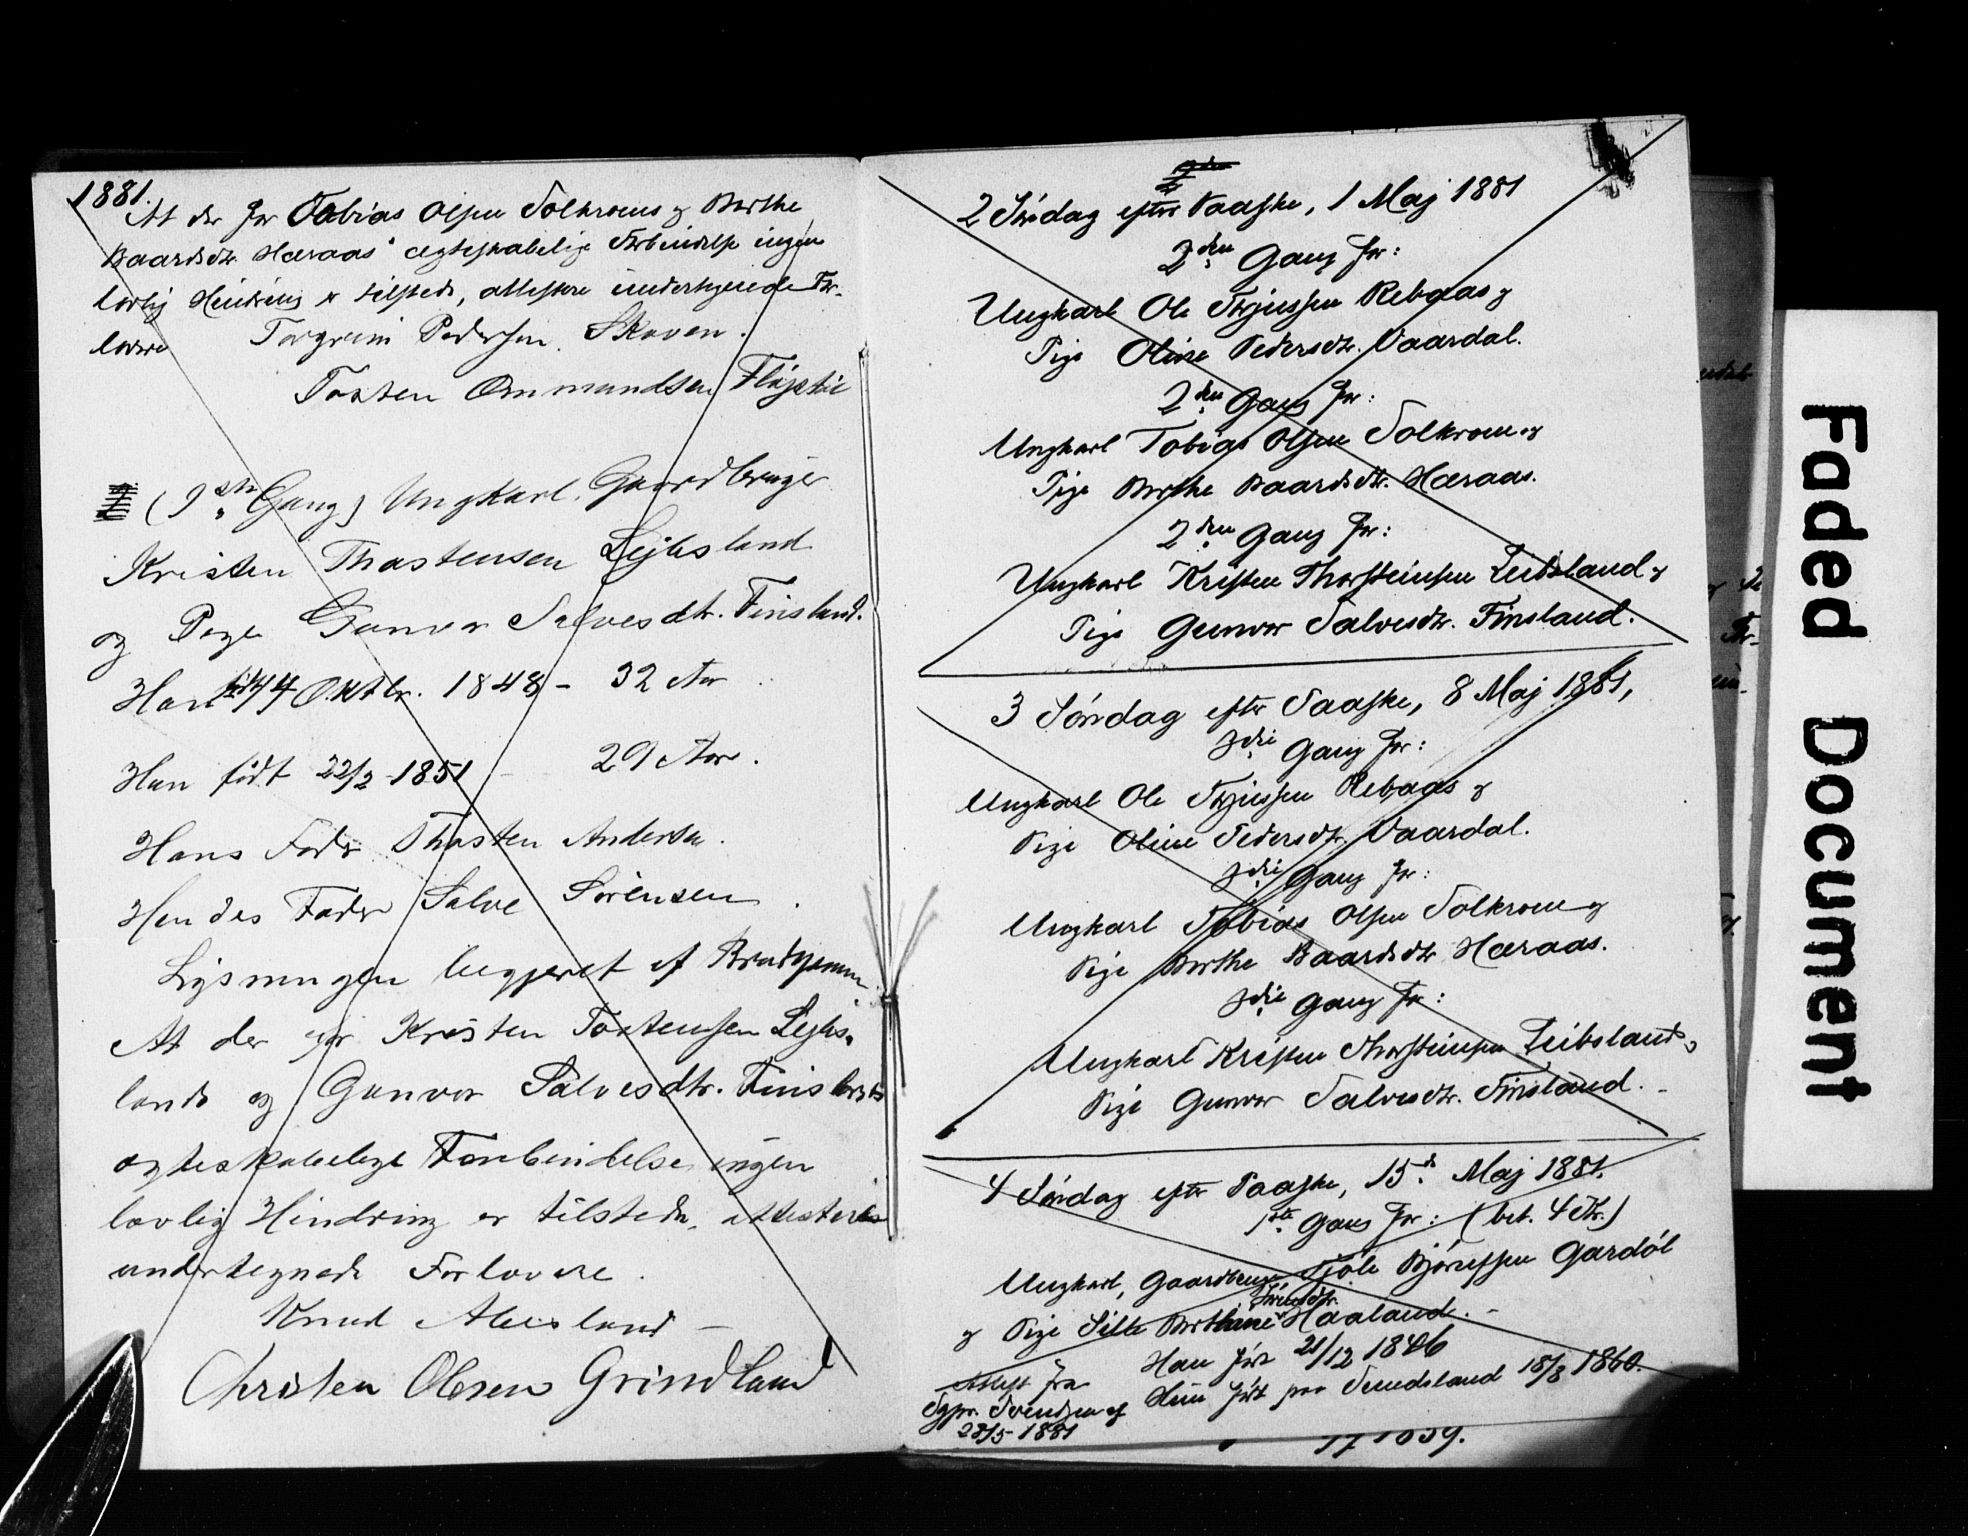 1881.
At der for Tobias Olsen Solkroens og Berthe
Baardsdtr. Høeraas' ægteskabelige Forbindelse ingen
lovlig Hindring er tilstede, attestere undertegnede For-
lovere Torgrim Pedersen Skoven.
Tosten Ommundsen Fløjstøl
(1ste Gang) Ungkarl, Gaardbruger
Kristen Thostensen Lejbsland
og Pige Gunvor Salvesdtr. Finsland.
Han født 14 Oktbr. 1848 - 32 Aar
Hun født 22/2 - 1851 - 29 Aar.
Hans Fader Thosten Andersen.
Hendes Fader Salve Sørensen.
Lysningen begjæret af Brudgommen
At der for Kristen Tostensen Lejbs-
lands og Gunvor Salvesdtr. Finslands
ægteskabelige Forbindelse ingen
lovlig Hindring er tilstede, attesteres
undertegnede Forlovere.
Knud Aleesland -
Christen Olesen Grindland
2 Søndag efter Paaske, 1 Maj 1881
2den Gang for:
Ungkarl Ole Terjessen Rebaas og
Pige Oline Pedersdtr. Vaardal.
2den Gang for:
Ungkarl Tobias Olsen Solkroen og
Pige Berthe Baardsdtr. Høeraas.
2den Gang for:
Ungkarl Kristen Thorsteinsen Leibsland og
Pige Gunvor Salvesdtr. Finsland.
3 Søndag efter Paaske, 8 Maj 1881,
3die Gang for:
Ungkarl Ole Terjessen Rebaas og
Pige Oline Pedersdtr. Vaardal.
3die Gang for:
Ungkarl Tobias Olsen Solkroen og
Pige Berthe Baardsdtr. Høeraas.
3die Gang for:
Ungkarl Kristen Thorsteinsen Leibsland og
Pige Gunvor Salvesdtr. Finsland. -
4 Søndag efter Paaske, 15d. Maj 1881.
1ste Gang for: (bet. 4 Kr.)
Ungkarl, Gaardbruger, Bjørnssen Gardøl
og Pige Sille Berthine Haaland. -
Han født 21/12 1846
Hun født paa Svendsland 18/8 1860.
Attest fra
Sgpr. Svendsen af
28/5 1881
1859.
Faded Document